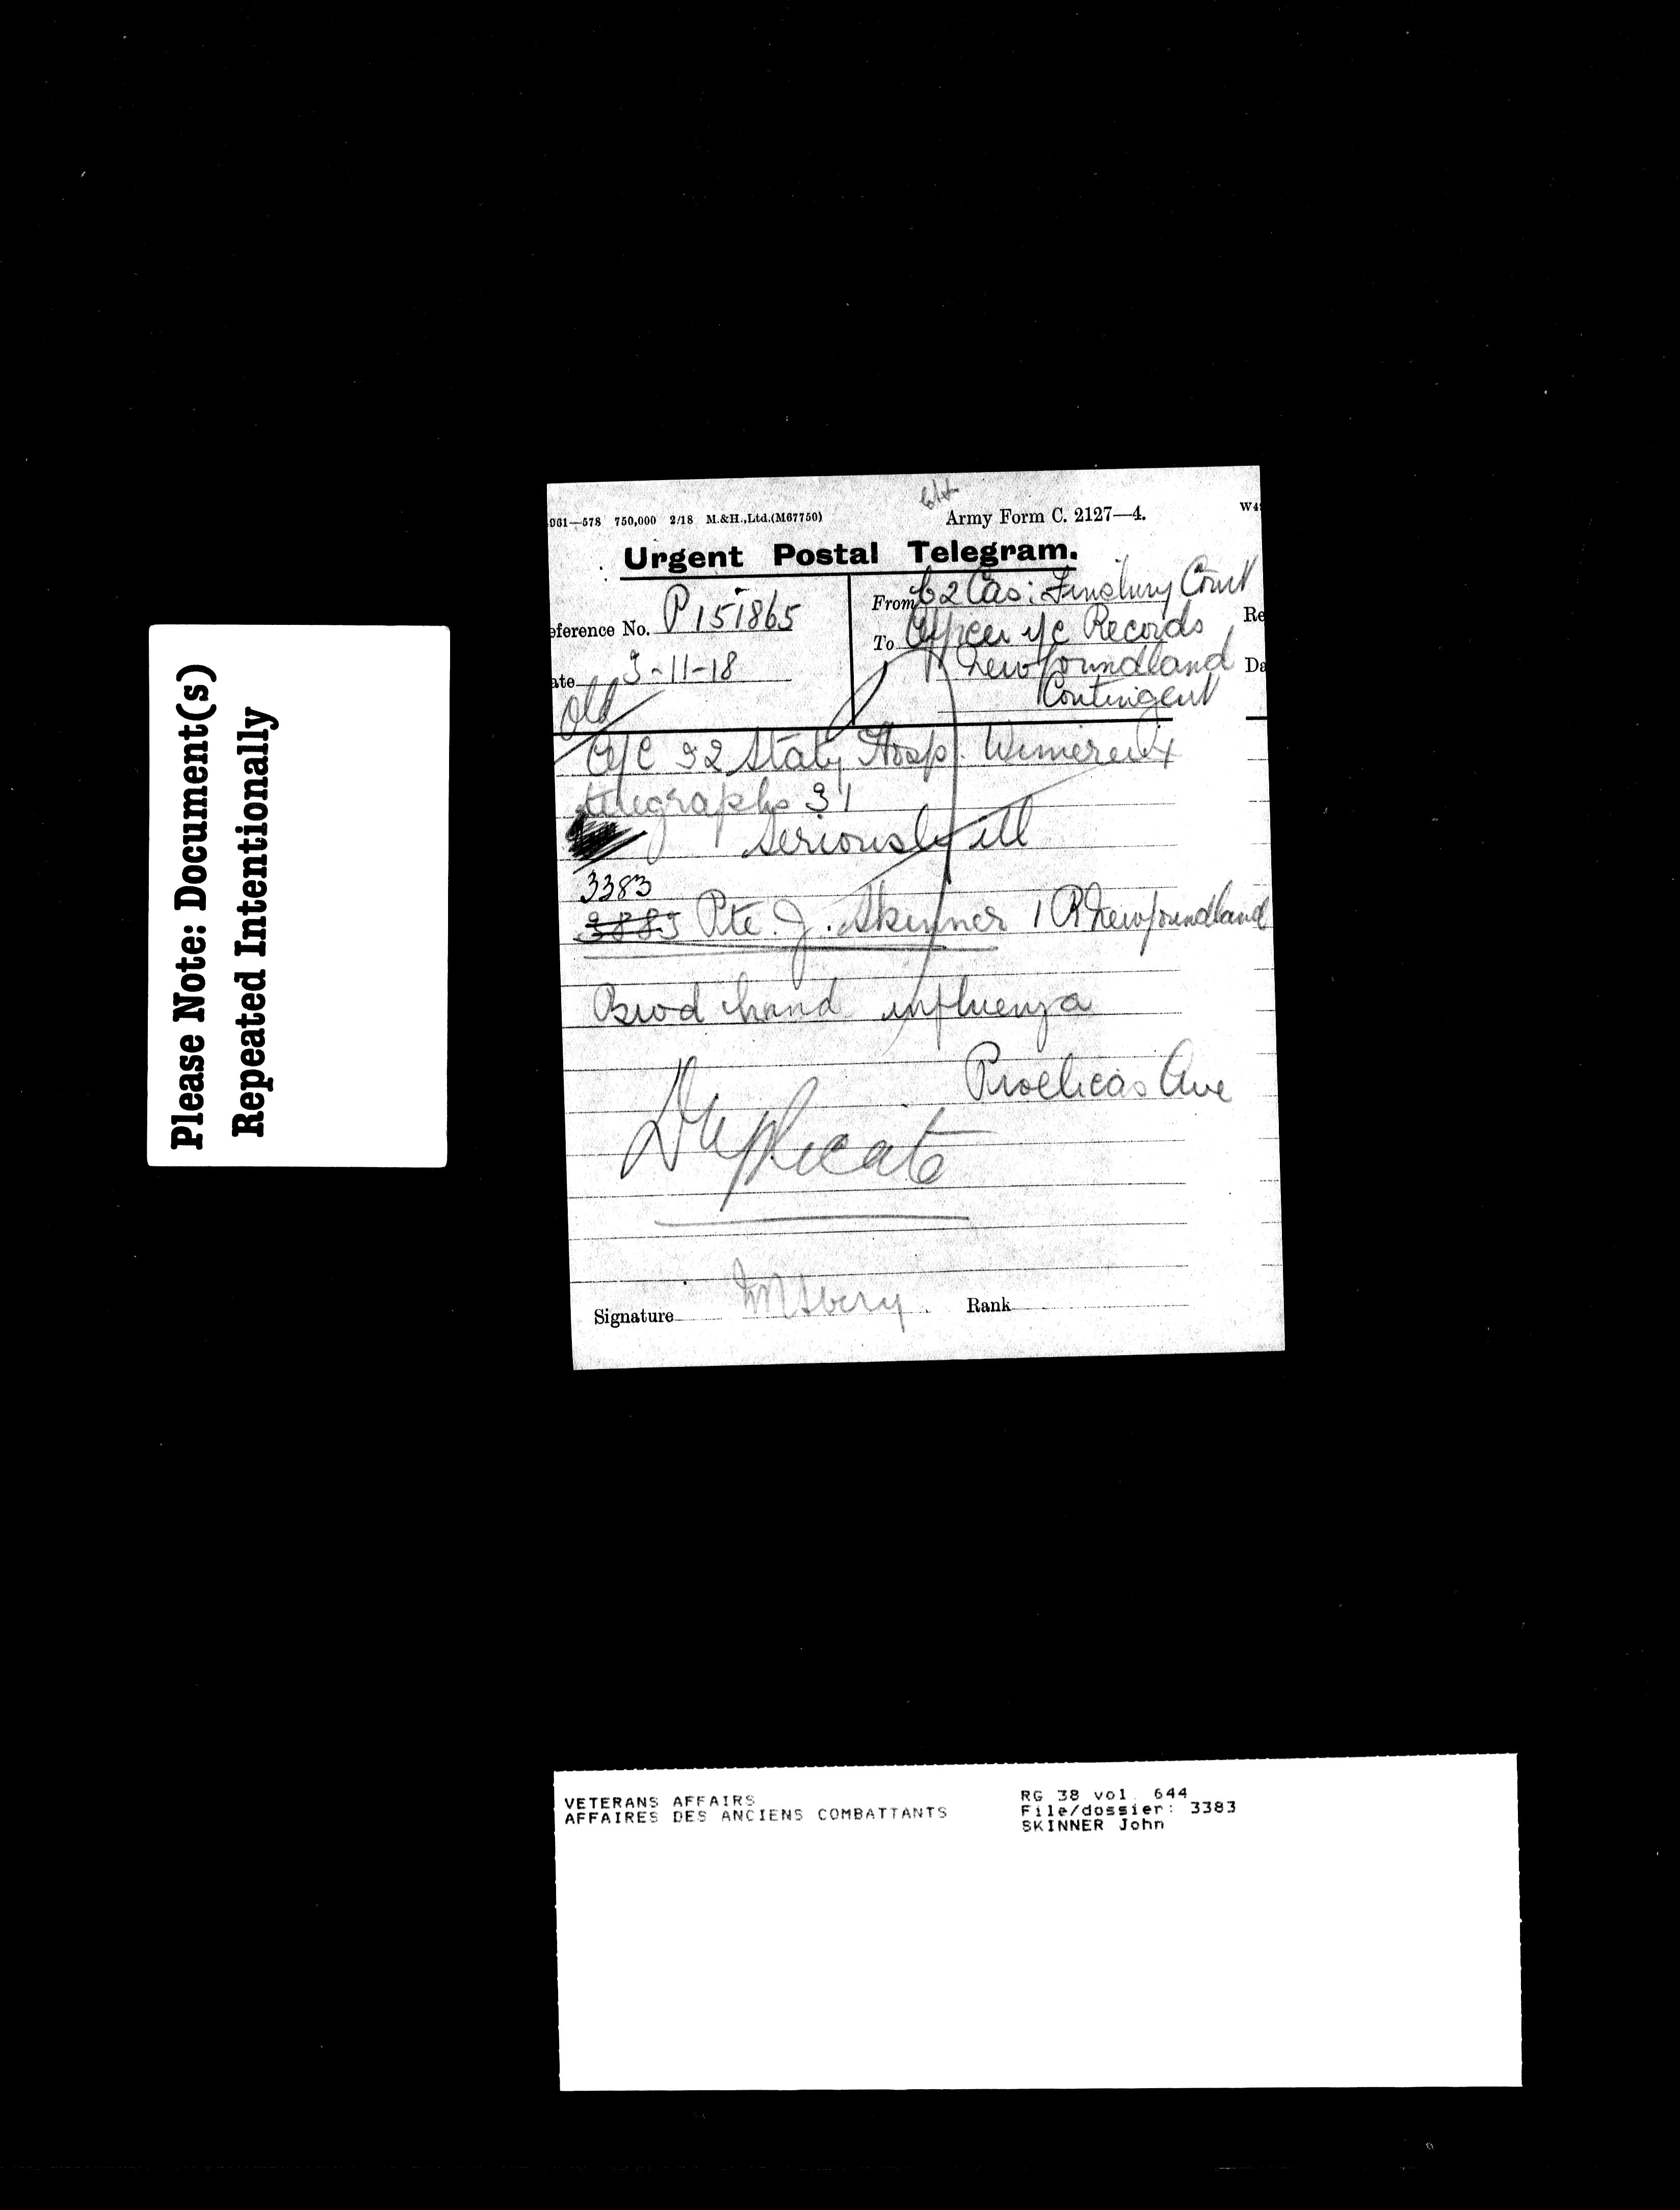 Please Note: Document(s)
Repeated Intentionally
961—578 750,000 2/18 M.&H.,Ltd.(M67750)
Army Form C. 2127—4.
W4
Urgent Postal Telegram.
eference No. P151865
From C2 Cas: Finsbury Court
Re
To Officer i/c Records
Newfoundland
Contingent
ate 3-11-18
Da
Old
O/C 32 Staty Hosp. Wimereux
telegraphs 31
Seriously ill
3383
3885 Pte. J. Skinner 1 R Newfoundland
hand influenza
Ave
Duplicate
Signature
Rank
VETERANS AFFAIRS
AFFAIRES DES ANCIENS COMBATTANTS
RG 38 vol. 644
File/dossier: 3383
SKINNER John